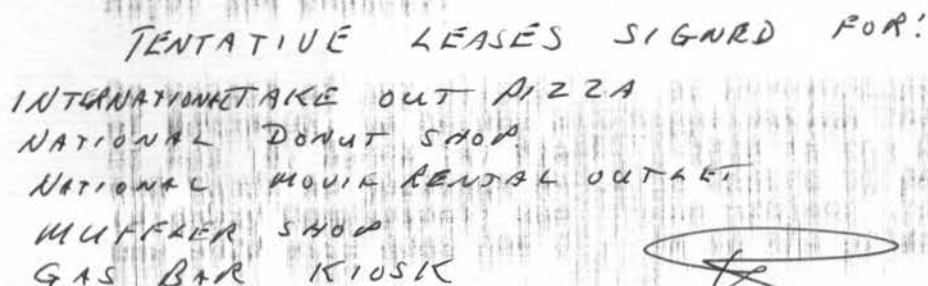 TENTATIVE LEASES SIGNED FOR:
INTERNATIONAL TAKE OUT PIZZA
NATIONAL DONUT SHOP.
NATIONAL MOVIE RENTAL OUTLET
MUFFLER SHOP
GAS BAR KIOSK